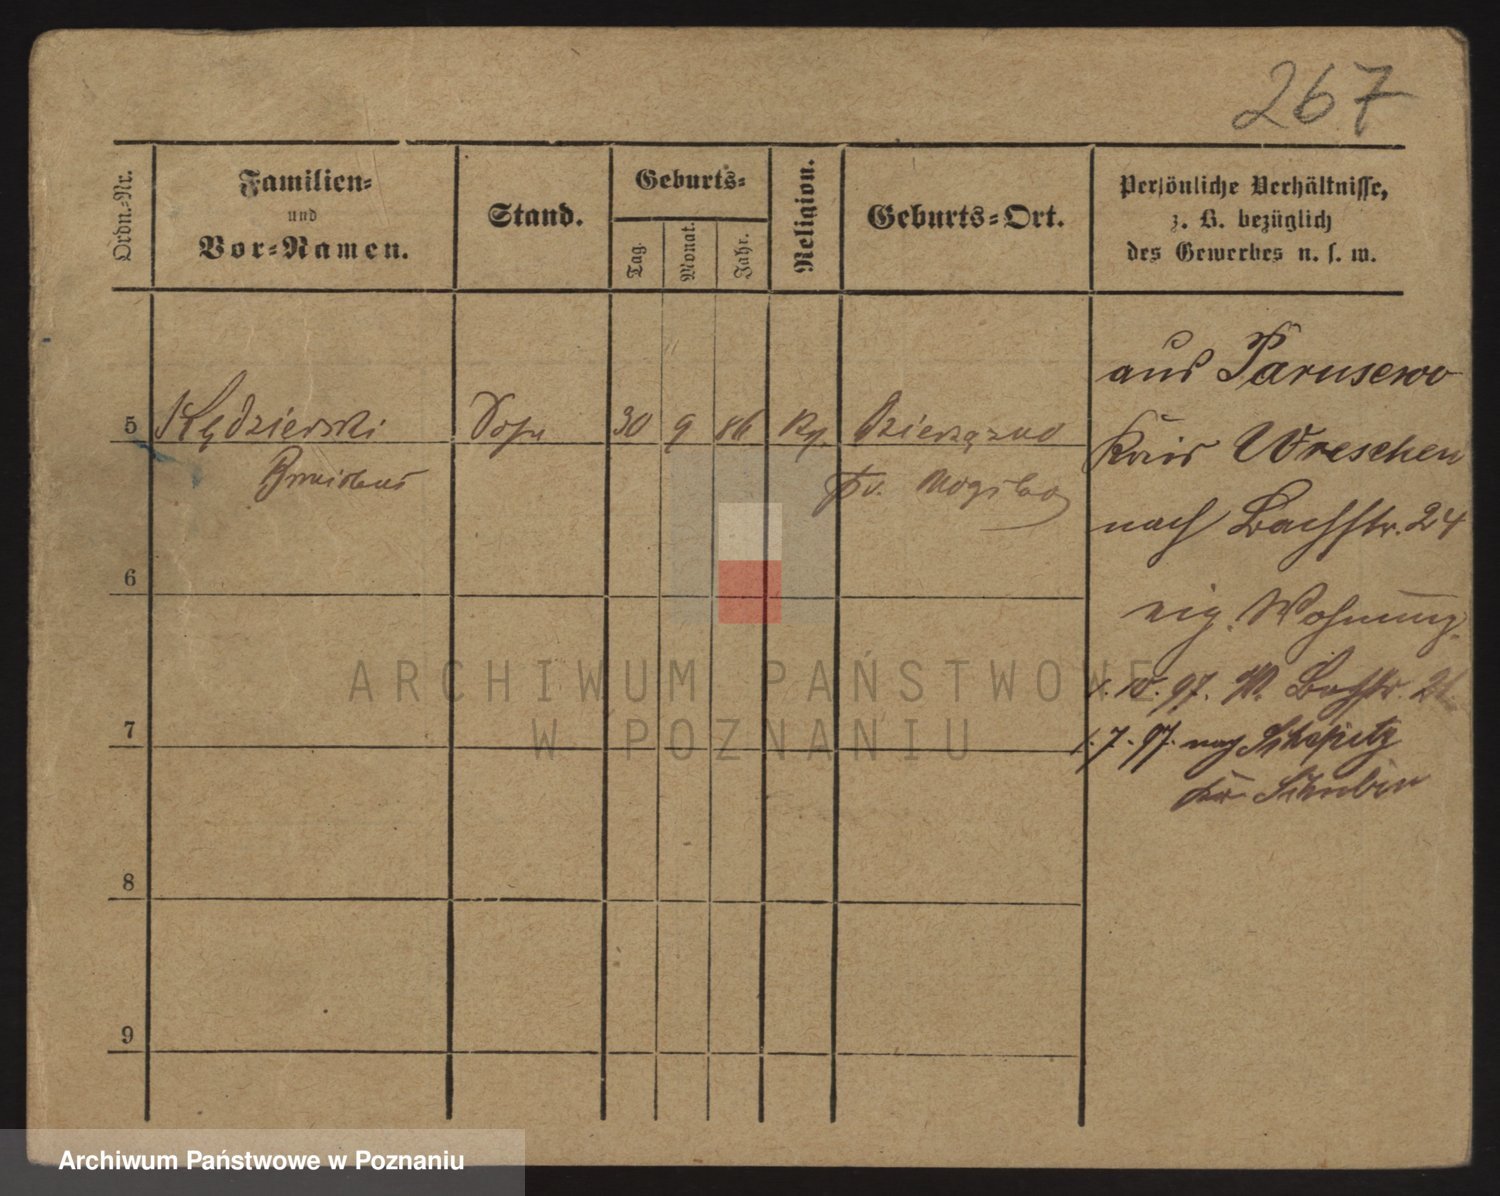 267
Ordn.-Nr.
Familien-
und
Vor-Namen.
Stand.
Geburts-
Tag.
Monat.
Jahr.
Religion.
Geburts-Ort.
Persönliche Verhältnisse,
z. B. bezüglich
des Gewerbes u. s. w.
aus Parusewo
5 Kędzierski Sohn 30 9 86 Dzierzązno
Kreis Wreschen
Kr. Mogilno
nach Bachstr. 24
6
eig. Wohnung.
10. 97. W. Bachstr.
7
1. 7. 97. nach
Kr. Schubin
8
9
ARCHIWUM PAŃSTWOWE
W POZNANIU
Archiwum Państwowe w Poznaniu